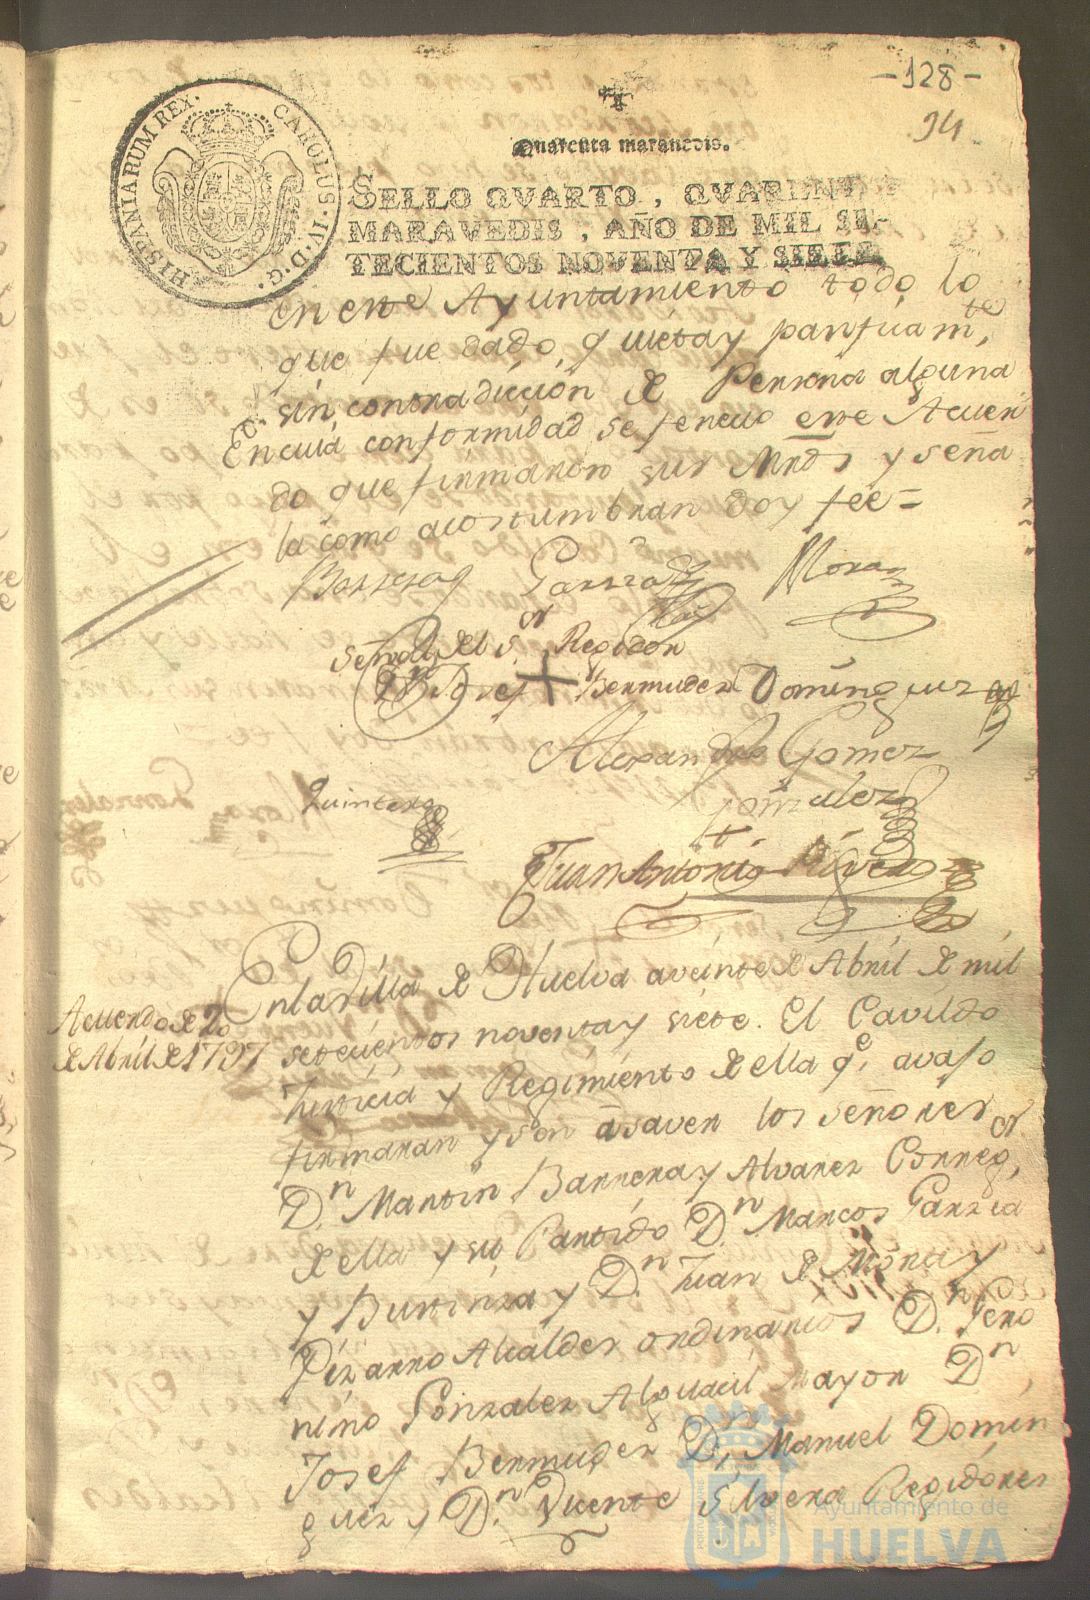 -128-
94
HISPANIARUM REX. CAROLUS. IV. D. G.
Quarenta maravedis.
SELLO QVARTO, QVARENTA
MARAVEDIS, AÑO DE MIL SE-
TECIENTOS NOVENTA Y SIETE
en este Ayuntamiento todo lo
que fue dado, quieta y pazificam.te
sin contradiccion de Persona alguna
En cuia conformidad se fenecio este Acuer
do que firmaron sus Mrds y seña
la como acostumbran doy fee =
Barrera Garzia Mora
señal del s.or Regidor
D.n Josef + Bermudez Dominguez
Alexandro Gomez
Quintero Gonzalez
Juan Antonio Rivero
En la Villa de Huelva a veinte de Abril de mil
Acuerdo de 20
setecientos noventa y siete. El Cavildo
de Abril de 1797
Justicia y Regimiento de ella q.e avajo
firmaran y son a saver los señores
D.n Martin Barrera y Alvarez Correg.or
de ella y su Partido D.n Marcos Garzia
y Burinza y D.n Juan de Mora y
Pizarro Alcaldes ordinarios D.n Gero
nimo Gonzalez Alguacil mayor D.n
Josef Bermudez D.n Manuel Domin
guez y D.n Vicente Silvera Regidores
Ayuntamiento de
HUELVA